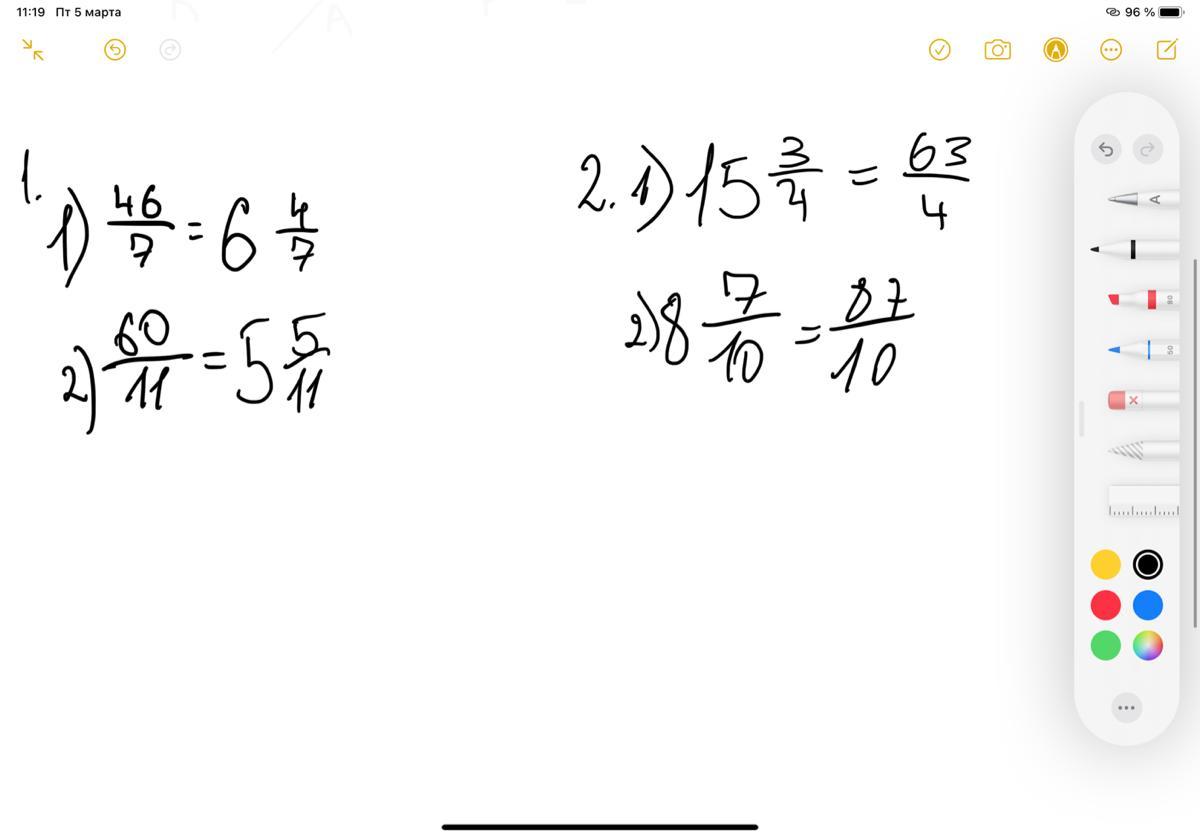 11:19 Пт 5 марта 96 %
1.
1) 46/7 = 6 4/7
2) 60/11 = 5 5/11
2. 1) 15 3/4 = 63/4
2) 8 7/10 = 87/10
A
80
50